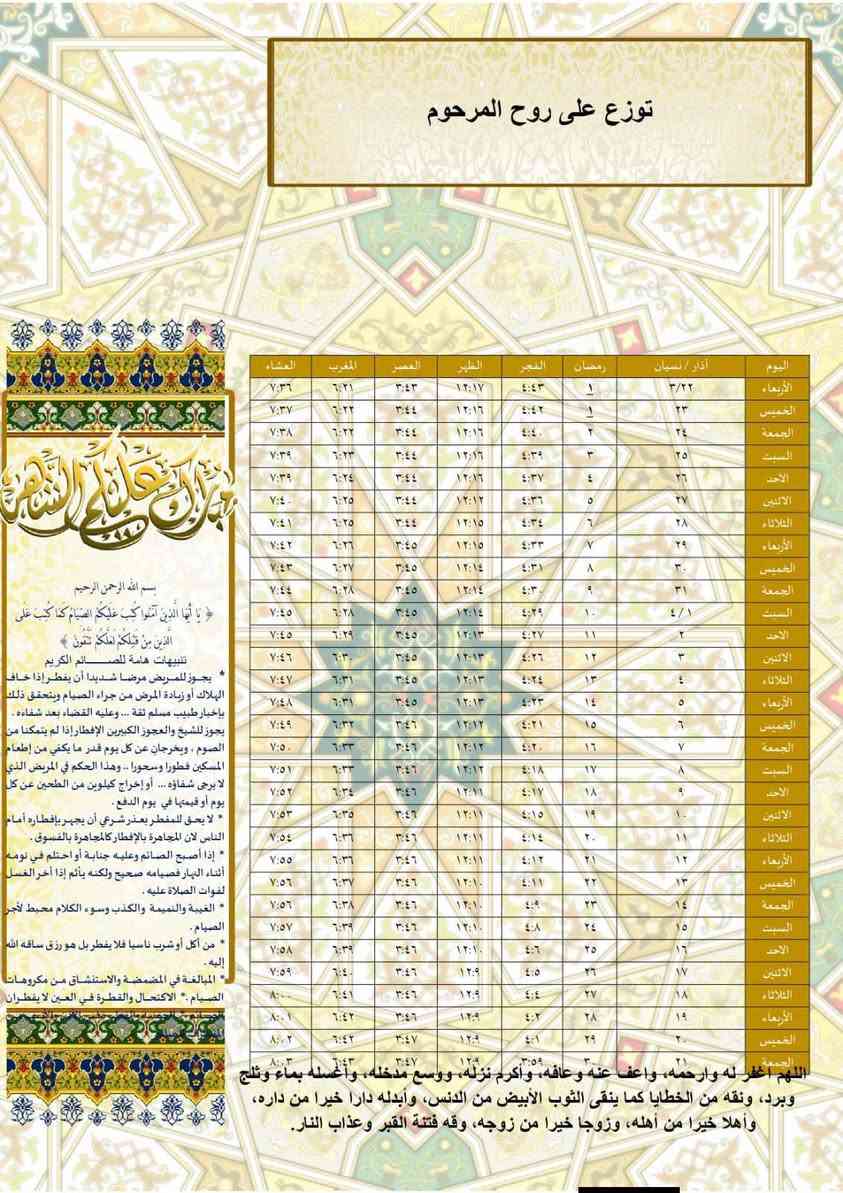 توزع على روح المرحوم
اليوم آذار / نسيان رمضان الفجر الظهر العصر المغرب العشاء
الأربعاء ٣/٢٢ ١ ٤:٤٣ ١٢:١٧ ٣:٤٣ ٦:٢١ ٧:٣٦
الخميس ٢٣ ١ ٤:٤٢ ١٢:١٦ ٣:٤٤ ٦:٢٢ ٧:٣٧
الجمعة ٢٤ ٢ ٤:٤٠ ١٢:١٦ ٣:٤٤ ٦:٢٢ ٧:٣٨
السبت ٢٥ ٣ ٤:٣٩ ١٢:١٦ ٣:٤٤ ٦:٢٣ ٧:٣٩
الاحد ٢٦ ٤ ٤:٣٧ ١٢:١٦ ٣:٤٤ ٦:٢٤ ٧:٣٩
الاثنين ٢٧ ٥ ٤:٣٦ ١٢:١٢ ٣:٤٤ ٦:٢٥ ٧:٤٠
الثلاثاء ٢٨ ٦ ٤:٣٤ ١٢:١٥ ٣:٤٤ ٦:٢٥ ٧:٤١
الأربعاء ٢٩ ٧ ٤:٣٣ ١٢:١٥ ٣:٤٥ ٦:٢٦ ٧:٤٢
الخميس ٣٠ ٨ ٤:٣١ ١٢:١٤ ٣:٤٥ ٦:٢٧ ٧:٤٣
الجمعة ٣١ ٩ ٤:٣٠ ١٢:١٤ ٣:٤٥ ٦:٢٨ ٧:٤٤
السبت ٤/١ ١٠ ٤:٢٩ ١٢:١٤ ٣:٤٥ ٦:٢٨ ٧:٤٥
الاحد ٢ ١١ ٤:٢٧ ١٢:١٣ ٣:٤٥ ٦:٢٩ ٧:٤٥
الاثنين ٣ ١٢ ٤:٢٦ ١٢:١٣ ٣:٤٥ ٦:٣٠ ٧:٤٦
الثلاثاء ٤ ١٣ ٤:٢٤ ١٢:١٣ ٣:٤٥ ٦:٣١ ٧:٤٧
الأربعاء ٥ ١٤ ٤:٢٣ ١٢:١٣ ٣:٤٥ ٦:٣١ ٧:٤٨
الخميس ٦ ١٥ ٤:٢١ ١٢:١٢ ٣:٤٦ ٦:٣٢ ٧:٤٩
الجمعة ٧ ١٦ ٤:٢٠ ١٢:١٢ ٣:٤٦ ٦:٣٣ ٧:٥٠
السبت ٨ ١٧ ٤:١٨ ١٢:١٢ ٣:٤٦ ٦:٣٣ ٧:٥١
الاحد ٩ ١٨ ٤:١٧ ١٢:١١ ٣:٤٦ ٦:٣٤ ٧:٥٢
الاثنين ١٠ ١٩ ٤:١٥ ١٢:١١ ٣:٤٦ ٦:٣٥ ٧:٥٣
الثلاثاء ١١ ٢٠ ٤:١٤ ١٢:١١ ٣:٤٦ ٦:٣٦ ٧:٥٤
الأربعاء ١٢ ٢١ ٤:١٢ ١٢:١١ ٣:٤٦ ٦:٣٦ ٧:٥٥
الخميس ١٣ ٢٢ ٤:١١ ١٢:١٠ ٣:٤٦ ٦:٣٧ ٧:٥٦
الجمعة ١٤ ٢٣ ٤:٩ ١٢:١٠ ٣:٤٦ ٦:٣٨ ٧:٥٦
السبت ١٥ ٢٤ ٤:٨ ١٢:١٠ ٣:٤٦ ٦:٣٩ ٧:٥٧
الاحد ١٦ ٢٥ ٤:٦ ١٢:١٠ ٣:٤٦ ٦:٣٩ ٧:٥٨
الاثنين ١٧ ٢٦ ٤:٥ ١٢:٩ ٣:٤٦ ٦:٤٠ ٧:٥٩
الثلاثاء ١٨ ٢٧ ٤:٤ ١٢:٩ ٣:٤٦ ٦:٤١ ٨:٠٠
الأربعاء ١٩ ٢٨ ٤:٢ ١٢:٩ ٣:٤٦ ٦:٤٢ ٨:٠١
الخميس ٢٠ ٢٩ ٤:١ ١٢:٩ ٣:٤٧ ٦:٤٢ ٨:٠٢
الجمعة ٢١ ٣٠ ٣:٥٩ ١٢:٩ ٣:٤٧ ٦:٤٣ ٨:٠٣
مبارك عليكم الشهر
بسم الله الرحمن الرحيم
﴿ يَا أَيُّهَا الَّذِينَ آمَنُوا كُتِبَ عَلَيْكُمُ الصِّيَامُ كَمَا كُتِبَ عَلَى
الَّذِينَ مِنْ قَبْلِكُمْ لَعَلَّكُمْ تَتَّقُونَ ﴾
تنبيهات هامة للصائم الكريم
* يجوز للمريض مرضا شديدا أن يفطر إذا خاف
الهلاك أو زيادة المرض من جراء الصيام ويتحقق ذلك
بإخبار طبيب مسلم ثقة ... وعليه القضاء بعد شفاءه .
يجوز للشيخ والعجوز الكبيرين الإفطار إذا لم يتمكنا من
الصوم ، ويخرجان عن كل يوم قدر ما يكفي من إطعام
المسكين فطورا وسحورا .. وهذا الحكم في المريض الذي
لا يرجى شفاؤه ... أو إخراج كيلوين من الطحين عن كل
يوم أو قيمتها في يوم الدفع .
* لا يحق للمفطر بعذر شرعي أن يجهر بإفطاره أمام
الناس لان المجاهرة بالإفطار كالمجاهرة بالفسوق .
* إذا أصبح الصائم وعليه جنابة أو احتلم في نومه
أثناء النهار فصيامه صحيح ولكنه يأثم إذا أخر الغسل
لفوات الصلاة عليه .
* الغيبة والنميمة والكذب وسوء الكلام محبط لأجر
الصيام .
* من أكل أو شرب ناسيا فلا يفطر بل هو رزق ساقه الله
إليه .
* المبالغة في المضمضة والاستنشاق من مكروهات
الصيام .* الاكتحال والقطرة في العين لا يفطران
اللهم اغفر له وارحمه، واعف عنه وعافه، وأكرم نزله، ووسع مدخله، وأغسله بماء وثلج
وبرد، ونقه من الخطايا كما ينقى الثوب الأبيض من الدنس، وأبدله دارا خيرا من داره،
وأهلا خيرا من أهله، وزوجا خيرا من زوجه، وقه فتنة القبر وعذاب النار.